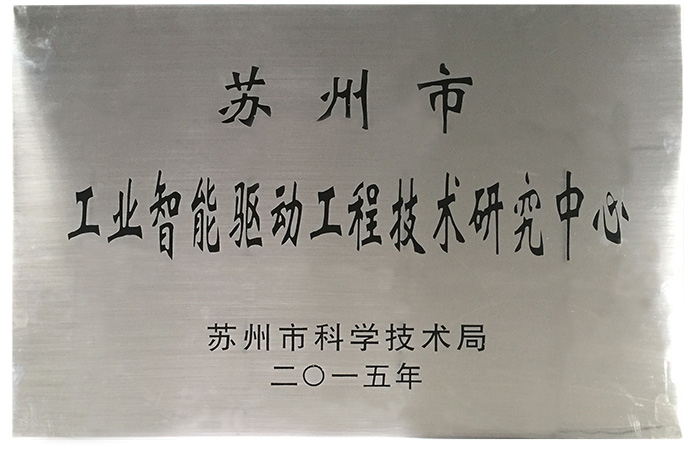 苏州市
工业智能驱动工程技术研究中心
苏州市科学技术局
二〇一五年